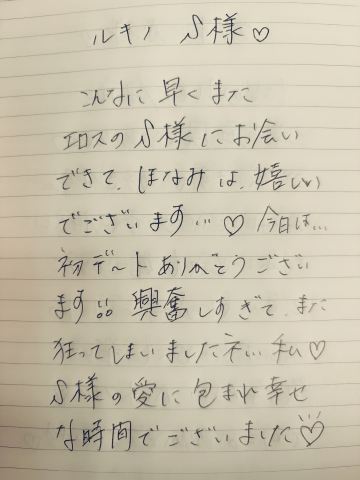 ルキノ S様♡
こんなに早くまた
エロスのS様にお会い
できて、ほなみは、嬉しい
でございます…♡今日は…
初デートありがとうござい
ます!!興奮しすぎて、また
狂ってしまいましたネ…私♡
S様の愛に包まれ幸せ
な時間でございました♡